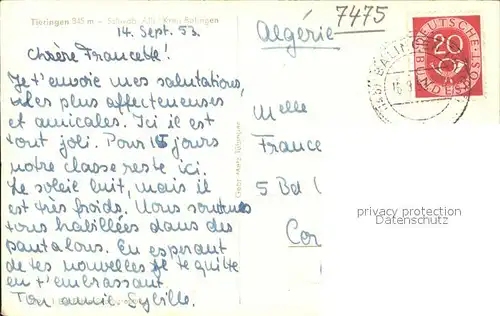 Tieringen 845 m – Schwäb. Alb, Kreis Balingen
14. Sept. 53.
Chsère Francette!
Je t'envoie mes salutations,
les plus affecteneuses
et amicales. Ici il est
tout joli. Pour 15 jours
notre classe reste ici.
Le soleil luit, mais il
est très froids. Nous sommes
tous habillées dans des
pantalons. En esperant
de tes nouvelles je te quitte
en t'embrassant
Ton amie. Sybille.
7475
Algérie
DEUTSCHE
BUNDESPOST
20
BALIN
Melle
France
5 Bd
Con
privacy protection
VDM.com